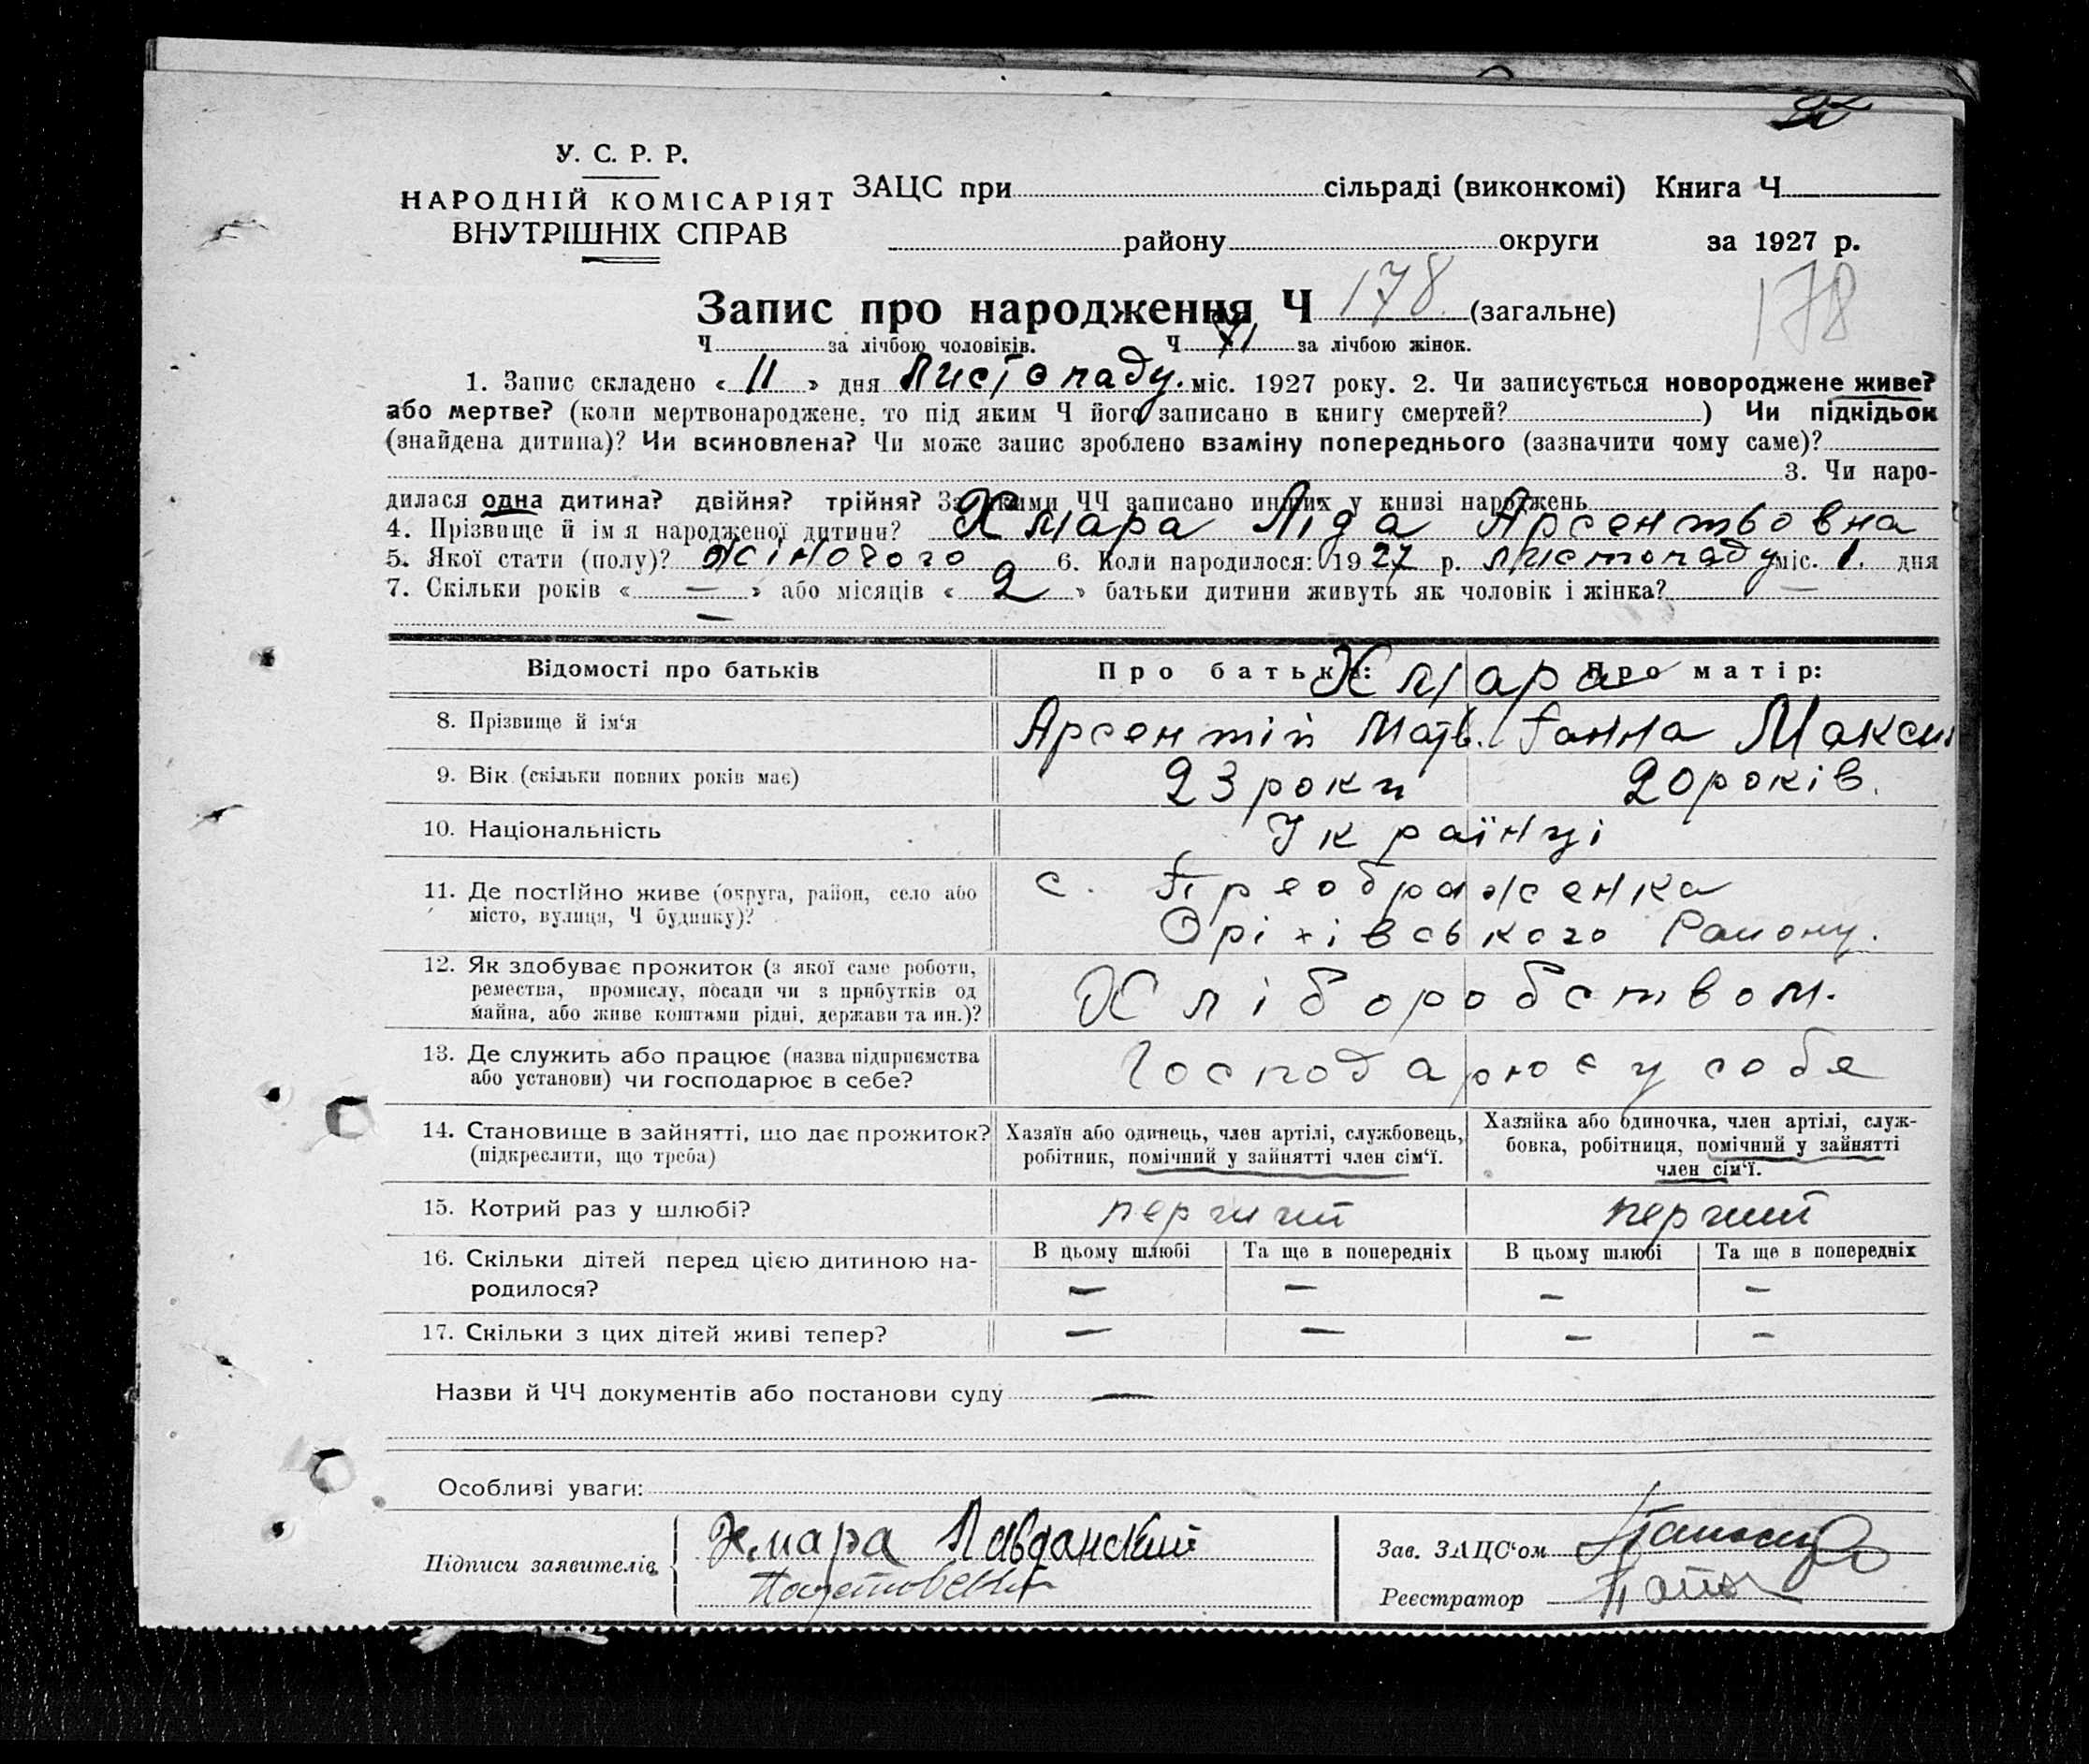 У. С. Р. Р.
НАРОДНІЙ КОМІСАРІЯТ
ВНУТРІШНІХ СПРАВ
ЗАЦС при сільраді (виконкомі) Книга Ч
району округи за 1927 р.
Запис про народження Ч 178 (загальне) 178
Ч за лічбою чоловіків. Ч 71 за лічбою жінок.
1. Запис складено « 11 » дня Листопаду. міс. 1927 року. 2. Чи записується новороджене живе?
або мертве? (коли мертвонароджене, то під яким Ч його записано в книгу смертей? ) Чи підкідьок
(знайдена дитина)? Чи всиновлена? Чи може запис зроблено взаміну попереднього (зазначити чому саме)?
3. Чи наро-
дилася одна дитина? двійня? трійня? За якими ЧЧ записано инших у книзі народжень
4. Прізвище й ім'я народженої дитини? Хмара Ліда Арсентьовна
5. Якої стати (полу)? жіночого 6. Коли народилося: 1927 р. листопаду міс. 1. дня
7. Скільки років « — » або місяців « 2 » батьки дитини живуть як чоловік і жінка? —
—
Відомості про батьків Про батька: Про матір:
Хмара
8. Прізвище й ім‘я Арсентій Матв. Ганна Максим
9. Вік (скільки повних років має) 23 роки 20 років.
10. Національність Українці
11. Де постІйно живе (округа, район, село або
місто, вулиця, Ч будинку)?
с. Преображенка
Оріхівського Району.
12. Як здобуває прожиток (з якої саме роботи,
ремества, промислу, посади чи з прибутків од
майна, або живе коштами рідні, держави та ин.)?
Хліборобством.
13. Де служить або працює (назва підприємства
або установи) чи господарює в себе?
Господарює у собе
14. Становище в зайнятті, що дає прожиток?
(підкреслити, що треба)
Хазяїн або одинець, член артілі, службовець,
робітник, помічний у зайнятті член сім‘ї.
Хазяйка або одиночка, член артілі, служ-
бовка, робітниця, помічний у зайнятті
член сім‘ї.
15. Котрий раз у шлюбі? перший перший
16. Скільки дітей перед цією дитиною на-
родилося?
В цьому шлюбі Та ще в попередніх В цьому шлюбі Та ще в попередніх
— — — —
17. Скільки з цих дітей живі тепер? — — — —
Назви й ЧЧ документів або постанови суду —
Особливі уваги:
Підписи заявителів Хмара
Зав. ЗАЦС‘ом
Реєстратор